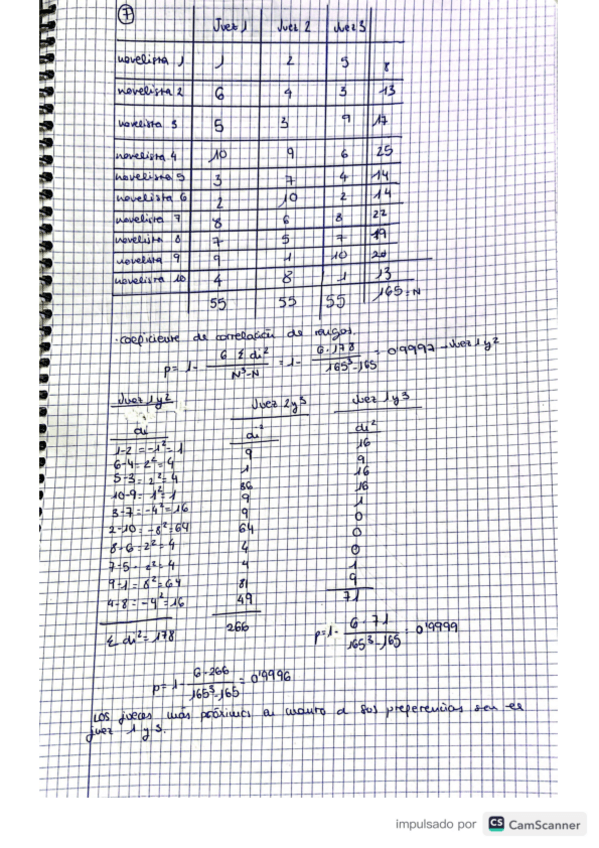 7
Juez 1 Juez 2 Juez 3
novelista 1 1 2 5 8
novelista 2 6 4 3 13
novelista 3 5 3 9 17
novelista 4 10 9 6 25
novelista 5 3 7 4 14
novelista 6 2 10 2 14
novelista 7 8 6 8 22
novelista 8 7 5 7 19
novelista 9 9 1 10 20
novelista 10 4 8 1 13
55 55 55 165=N
·coeficiente de correlación de rangos.
p= 1- 6 Σ di² / N³-N = 1- 6·178 / 165³-165 = 0'9997 → Juez 1 y 2
Juez 1 y 2 Juez 2 y 3 Juez 1 y 3
di di² di²
1-2 = -1² = 1 9 16
6-4 = 2² = 4 1 9
5-3 = 2² = 4 36 16
10-9 = 1² = 1 9 16
3-7 = -4² = 16 9 1
2-10 = -8² = 64 64 0
8-6 = 2² = 4 4 0
7-5 = 2² = 4 4 0
9-1 = 8² = 64 81 1
4-8 = -4² = 16 49 9
Σ di² = 178 266 71
p=1- 6·71 / 165³-165 = 0'9999
p= 1- 6·266 / 165³-165 = 0'9996
Los jueces más próximos en cuanto a sus preferencias son el
juez 1 y 3.
impulsado por CS CamScanner